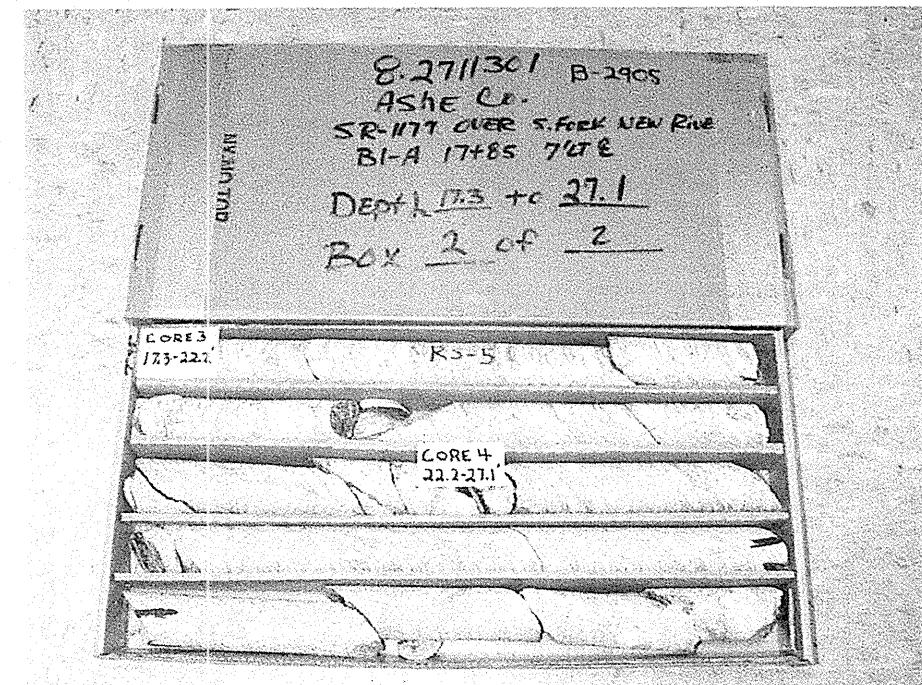 8.2711301 B-2905
ASHE Co.
SR-1179 OVER S. FORK NEW RIVE
B1-A 17+85 7'LT ℄
DEPTH 17.3 to 27.1
Box 2 of 2
CORE 3
17.3-22.2'
RS-5
CORE 4
22.2-27.1'